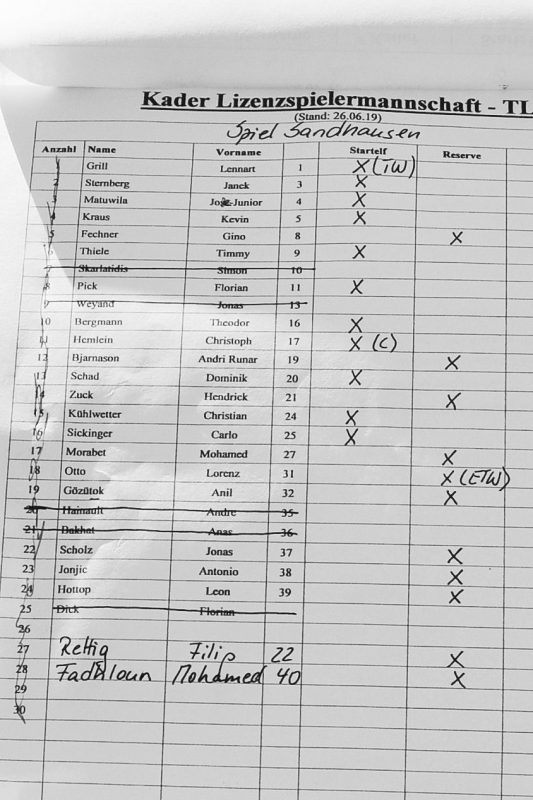 Kader Lizenzspielermannschaft - TL
(Stand: 26.06.19)
Spiel Sandhausen
Anzahl Name Vorname Startelf Reserve
1 Grill Lennart 1 X (TW)
2 Sternberg Janek 3 X
3 Matuwila José-Junior 4 X
4 Kraus Kevin 5 X
5 Fechner Gino 8 X
6 Thiele Timmy 9 X
7 Skarlatidis Simon 10
8 Pick Florian 11 X
9 Weyand Jonas 13
10 Bergmann Theodor 16 X
11 Hemlein Christoph 17 X (C)
12 Bjarnason Andri Runar 19 X
13 Schad Dominik 20 X
14 Zuck Hendrick 21 X
15 Kühlwetter Christian 24 X
16 Sickinger Carlo 25 X
17 Morabet Mohamed 27 X
18 Otto Lorenz 31 X (ETW)
19 Gözütok Anil 32 X
20 Hainault Andre 35
21 Bakhat Anas 36
22 Scholz Jonas 37 X
23 Jonjic Antonio 38 X
24 Hottop Leon 39 X
25 Dick Florian
26
27 Rettig Filip 22 X
28 Fadhloun Mohamed 40 X
29
30